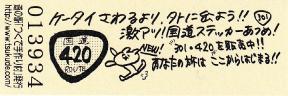 道の駅「つくで手作り村」発行
(http://www.tsukude.com/)
013934
国道
420
ROUTE
ケータイさわるより、外に出よう!! 301
激アツ!国道ステッカーあつめ!
NEW! "301・420"を販売中!!
あなたの旅はここからはじまる!!